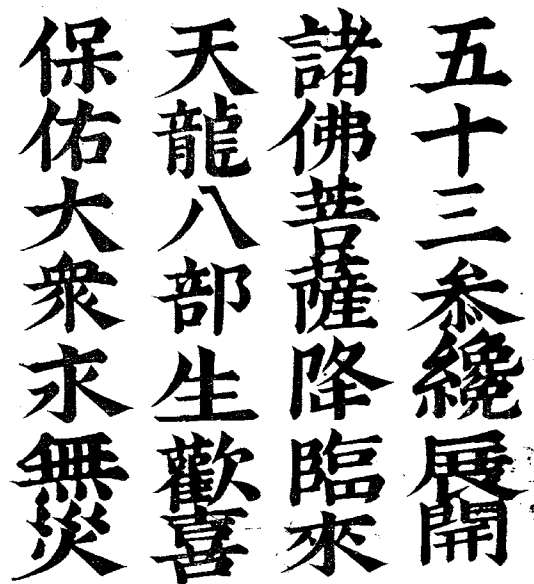 五十三叅纔展開
諸佛菩薩降臨來
天龍八部生歡喜
保佑大衆求無災